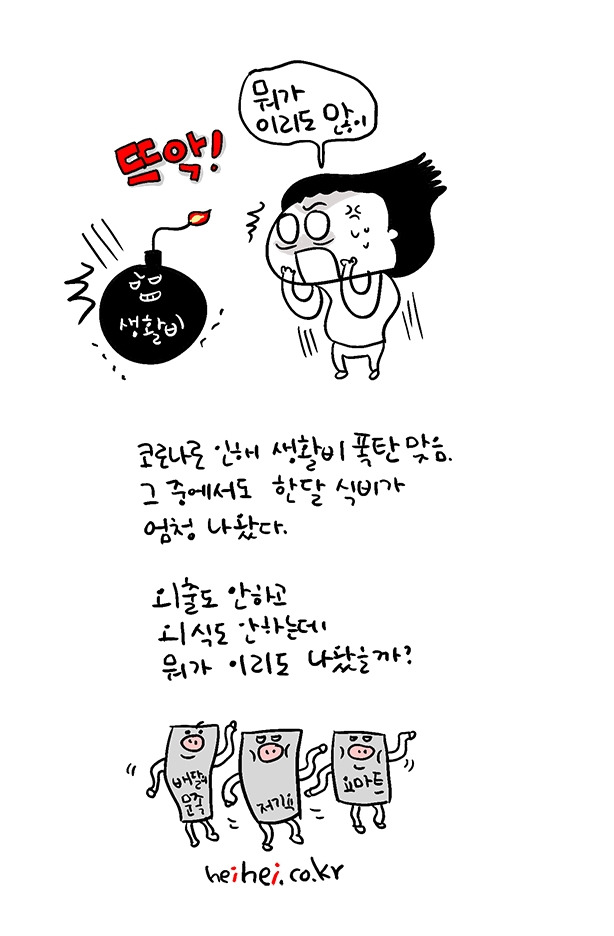 뭐가
이리도 많이
뜨악!
생활비
코로나로 인해 생활비 폭탄 맞음.
그 중에서도 한달 식비가
엄청 나왔다.
외출도 안하고
외식도 안하는데
뭐가 이리도 나왔을까?
배달의
문족
저기요
요마트
heihei.co.kr